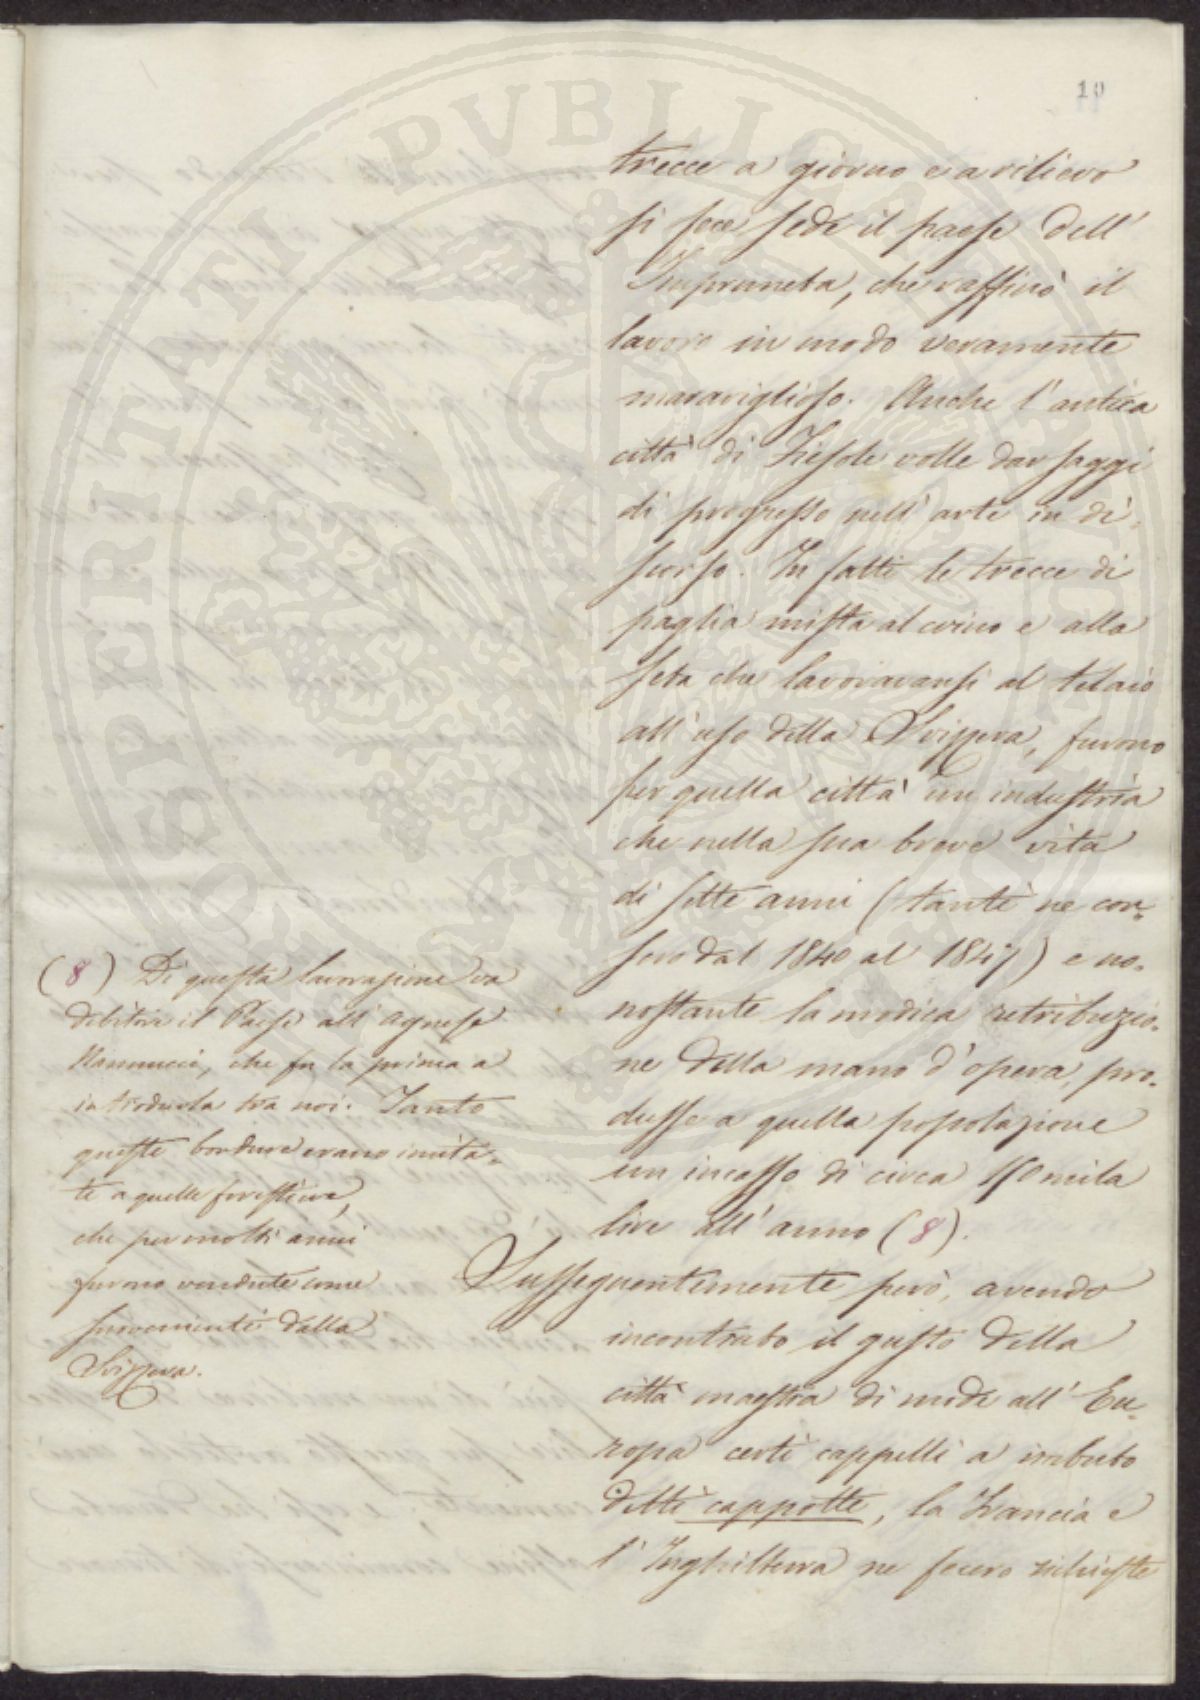 10
trecce a giorno e a rilievo
si fece sede il paese dell'
Impruneta, che raffinò il
lavoro in modo veramente
maraviglioso. Anche l'antica
città di Fiesole volle dar saggi
di progresso nell'arte in di-
scorso. In fatti le trecce di
paglia mista al crino e alla
seta che lavoravansi al telaio
all'uso della Svizzera, furono
per quella città un industria
che nella sua breve vita
di sette anni (tanti ne cor-
sero dal 1840 al 1847) e no-
nostante la modica retribuzio-
ne della mano d'opera, pro-
dusse a quella popolazione
un incasso di circa 150 mila
lire all'anno (8).
Susseguentemente però, avendo
incontrato il gusto della
città maestra di mode all'Eu-
ropa certi cappelli a imbuto
detti cappotte, la Francia e
l'Inghilterra ne fecero richieste
(8) Di questa lavorazione va
debitore il Paese all'Agnese
Mannucci, che fu la prima a
introdurla tra noi. Tanto
queste bordure erano imita-
te a quelle forestiere,
che per molti anni
furono vendute come
provenienti dalla
Svizzera.
PROSPERITATI PVBLICAE